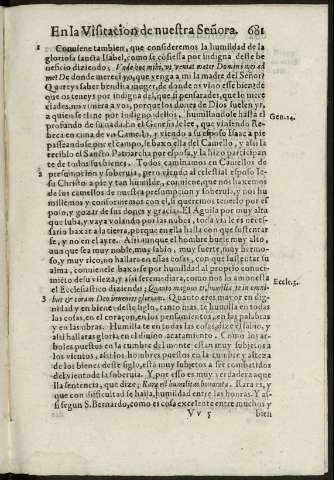 En la Visitacion de nuestra Señora. 681
1 Conuiene tambien, que consideremos la humildad de la
gloriosa sancta Isabel, como se cōfiessa por indigna deste be
neficio diziendo: Vnde hoc mihi, vt veniat mater Domini mei ad
me? De donde mereci yo, que venga a mi la madre del Señor?
Quereys saber bendita muger, de donde os vino esse biēr de
que os teneys por indigna del, que si pensarades, que lo mere
ciades, no viniera a vos, porque los dones de Dios suelen yr,
a quien se tiene por indigno dellos, humillandose hasta el
profundo de su nada. En el Genesis se lee, que viniendo Rebeca
Gen. 24.
en cima de vn Camello, y viendo a su esposo Isaac a pie
passeandose por el campo, se baxo ella del Camello, y assi la
recibio el Sancto Patriarcha por esposa, y la hizo participan
te de todos sus bienes. Todos caminamos en Camellos de
2 presumpcion y soberuia, pero viendo al celestial esposo Iesu
Christo a pie y tan humilde, conuiene, que nos baxemos
de los camellos de nuestra presumpcion y soberuia, y nos hu
millemos y conformemos con el, si queremos tenerlo por es
poso, y gozar de sus dones y gracias. El Aguila por muy alta
que suba, y vaya volando por las nubes, toda via le es neces-
sario baxar a la tierra, porque en ella halla con que sustentar
se, y no en el ayre. Assi aunque el hombre buele muy alto,
aun que sea muy noble, muy sabio, muy fuerte, muy hermo-
so, y muy rico, no hallara en estas cosas, con que sustentar su
alma, conuienele baxarse por humildad al proprio conoci-
miēto de su vileza, y assi sera medrara, como nos lo amonesta
el Ecclesiastico diziendo: Quanto magnus es, humilia te in omni
Eccles. 3.
3 bus & coram Deo inuenies gratiam. Quanto eres mayor en dig-
nidad y en bienes deste siglo, tanto mas te humilla en todas
las cosas, en el coraçon, en los pensamientos, en las palabras
y en las obras. Humilla te en todas las cosas, dize el sabio, y
assi hallaras gloria en el diuino acatamiento. Como los ar-
boles puestos en la cumbre del monte estan muy subjectos
a los vientos, assi los hombres puestos en la cumbre y alteza
de los bienes deste siglo, està muy subjectos a ser combatidos
del viento de la soberuia. Y por esso es muy verdadera aque
lla sentencia, que dize; Rara est humilitas honorata. Rara es, y
que con difficultad se halla, humildad entre las honras. Y as-
si segun S. Bernardo, como es cosa excelente entre muchos y
V v 5 bien